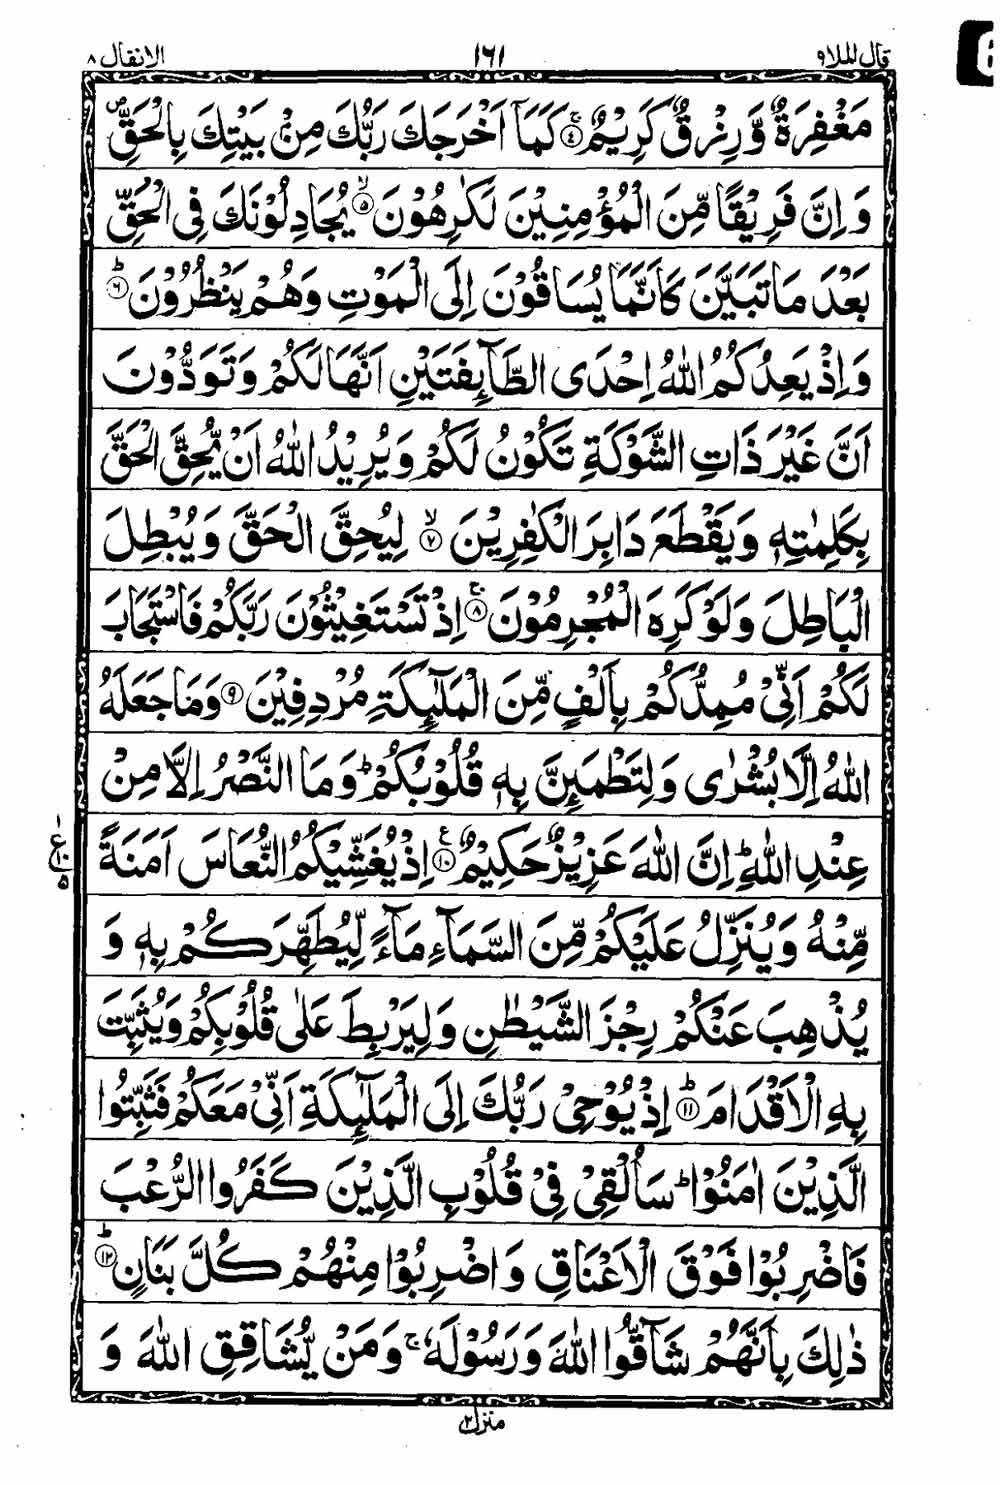 قال الملا ٩
١٦١
الانفال ٨
مَغْفِرَةٌ وَّرِزْقٌ كَرِيْمٌ ۚ﴿۴﴾ كَمَاۤ اَخْرَجَكَ رَبُّكَ مِنْۢ بَيْتِكَ بِالْحَقِّ ۪
وَاِنَّ فَرِيْقًا مِّنَ الْمُؤْمِنِيْنَ لَكٰرِهُوْنَ ۙ﴿۵﴾ يُجَادِلُوْنَكَ فِى الْحَقِّ
بَعْدَ مَا تَبَيَّنَ كَاَنَّمَا يُسَاقُوْنَ اِلَى الْمَوْتِ وَهُمْ يَنْظُرُوْنَ ؕ﴿۶﴾
وَاِذْ يَعِدُكُمُ اللّٰهُ اِحْدَى الطَّآٮِٕفَتَيْنِ اَنَّهَا لَكُمْ وَتَوَدُّوْنَ
اَنَّ غَيْرَ ذَاتِ الشَّوْكَةِ تَكُوْنُ لَكُمْ وَيُرِيْدُ اللّٰهُ اَنْ يُّحِقَّ الْحَقَّ
بِكَلِمٰتِهٖ وَيَقْطَعَ دَابِرَ الْكٰفِرِيْنَ ۙ﴿۷﴾ لِيُحِقَّ الْحَقَّ وَيُبْطِلَ
الْبَاطِلَ وَلَوْ كَرِهَ الْمُجْرِمُوْنَ ۚ﴿۸﴾ اِذْ تَسْتَغِيْثُوْنَ رَبَّكُمْ فَاسْتَجَابَ
لَكُمْ اَنِّىْ مُمِدُّكُمْ بِاَلْفٍ مِّنَ الْمَلٰٓٮِٕكَةِ مُرْدِفِيْنَ ﴿۹﴾ وَمَا جَعَلَهُ
اللّٰهُ اِلَّا بُشْرٰى وَلِتَطْمَٮِٕنَّ بِهٖ قُلُوْبُكُمْ ؕ وَمَا النَّصْرُ اِلَّا مِنْ
عِنْدِ اللّٰهِ ؕ اِنَّ اللّٰهَ عَزِيْزٌ حَكِيْمٌ ﴿۱۰﴾ اِذْ يُغَشِّيْكُمُ النُّعَاسَ اَمَنَةً
مِّنْهُ وَيُنَزِّلُ عَلَيْكُمْ مِّنَ السَّمَآءِ مَآءً لِّيُطَهِّرَكُمْ بِهٖ وَ
يُذْهِبَ عَنْكُمْ رِجْزَ الشَّيْطٰنِ وَلِيَرْبِطَ عَلٰى قُلُوْبِكُمْ وَيُثَبِّتَ
بِهِ الْاَقْدَامَ ؕ﴿۱۱﴾ اِذْ يُوْحِىْ رَبُّكَ اِلَى الْمَلٰٓٮِٕكَةِ اَنِّىْ مَعَكُمْ فَثَبِّتُوا
الَّذِيْنَ اٰمَنُوْا ؕ سَاُلْقِىْ فِىْ قُلُوْبِ الَّذِيْنَ كَفَرُوا الرُّعْبَ
فَاضْرِبُوْا فَوْقَ الْاَعْنَاقِ وَاضْرِبُوْا مِنْهُمْ كُلَّ بَنَانٍ ؕ﴿۱۲﴾
ذٰلِكَ بِاَنَّهُمْ شَآقُّوا اللّٰهَ وَرَسُوْلَهٗ ۚ وَمَنْ يُّشَاقِقِ اللّٰهَ وَ
منزل ٢